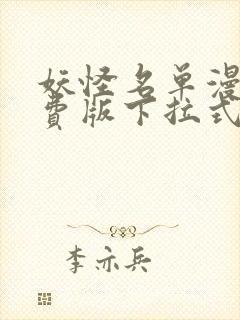 妖怪名单漫
费版下拉式
李亦兵